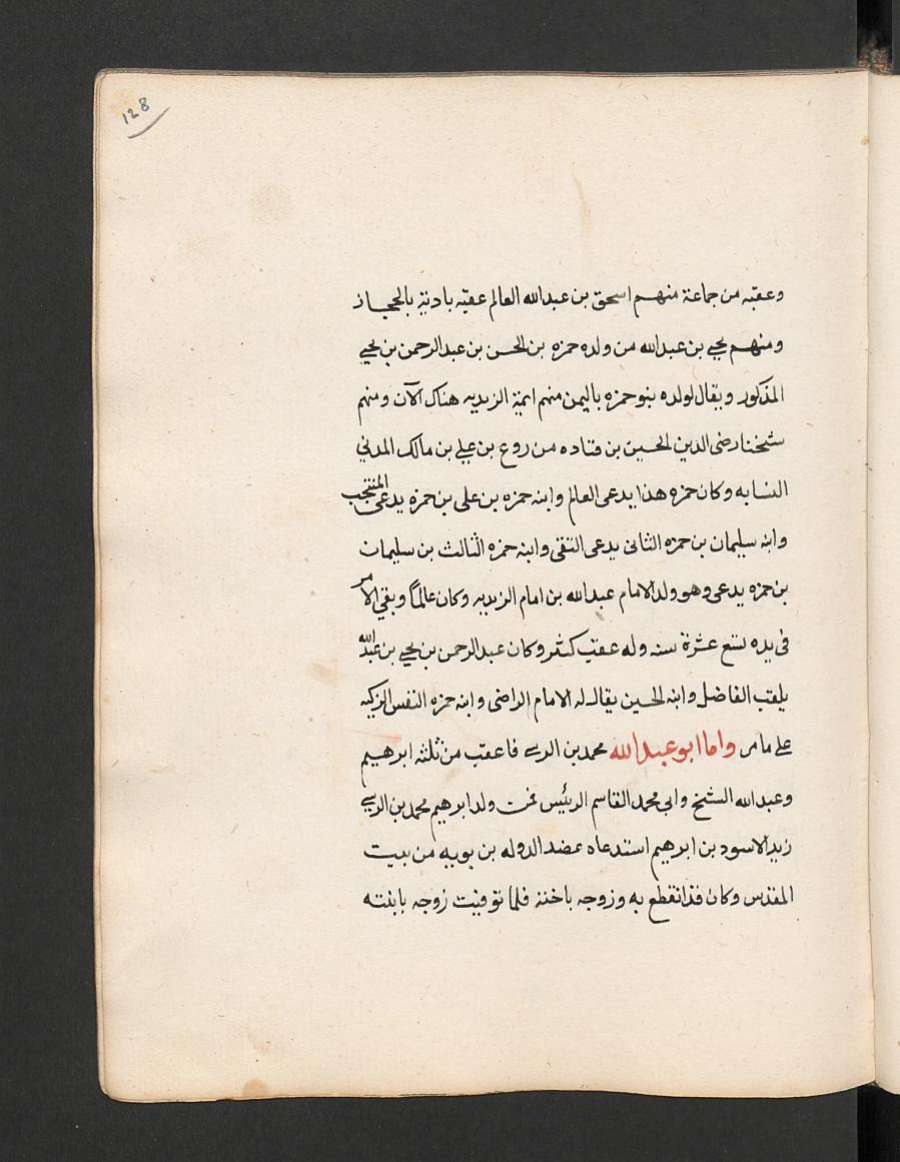 128
وعقبه من جماعة منهم اسحق بن عبدالله العالم عقبه بادية بالحجاز
ومنهم يحيى بن عبدالله من ولده حمزه بن الحسن بن عبدالرحمن بن يحيى
المذكور ويقال لولده بنو حمزه باليمن منهم ايمة الزيديه هناك الآن ومنهم
شيخنا رضى الدين الحسين بن قتاده من روع بن علي بن مالك المدني
النسابه وكان حمزه هذا يدعى العالم وابنه حمزه بن على بن حمزه يدعى المنتجب
وابنه سليمان بن حمزه الثانى يدعى التقى وابنه حمزه الثالث بن سليمان
بن حمزه يدعى وهو ولد الامام عبدالله بن امام الزيديه وكان عالمًا وبقي الامر
فى يده تسع عشرة سنه وله عقب كثير وكان عبدالرحمن بن يحيى بن عبدالله
يلقب الفاضل وابنه الحسين يقال له الامام الراضى وابنه حمزه النفس الزكيه
على ما مر واما ابو عبدالله محمد بن الرسى فاعقب من ثلثه ابرهيم
وعبدالله الشيخ وابى محمد القاسم الرئيس فمن ولد ابرهيم محمد بن الرسى
زيد الاسود بن ابرهيم استدعاه عضد الدوله بن بويه من بيت
المقدس وكان قد انقطع به وزوجه باخته فلما توفيت زوجه بابنته